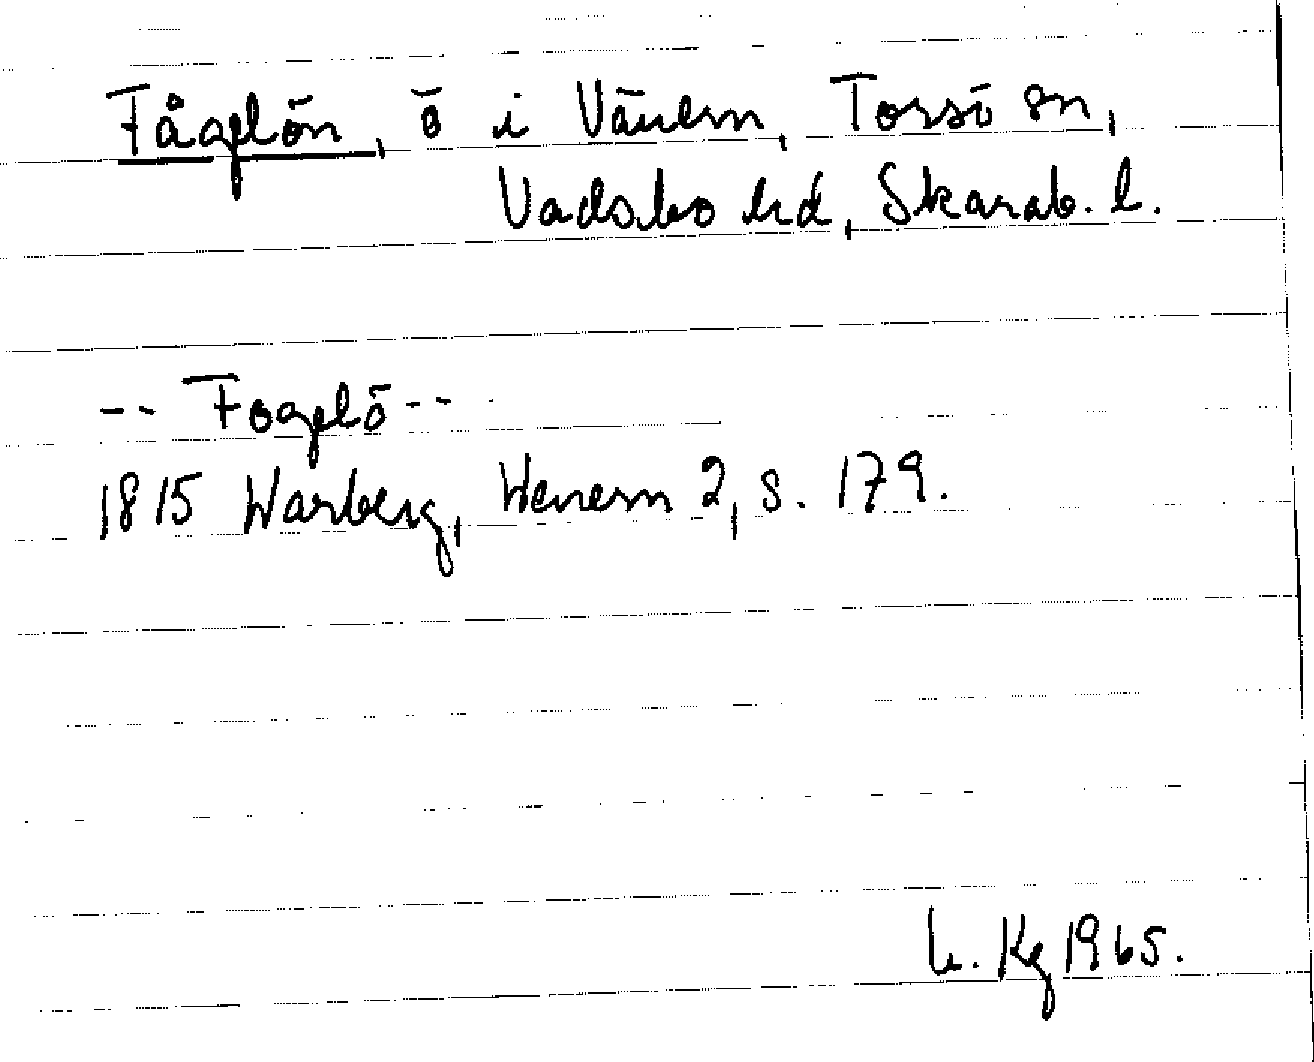 Fågelön, ö i Vänern, Torsö sn,
Vadsbo hd, Skarab. l.
-- Fogelö --
1815 Warberg, Wenern 2, s. 179.
Kg 1965.